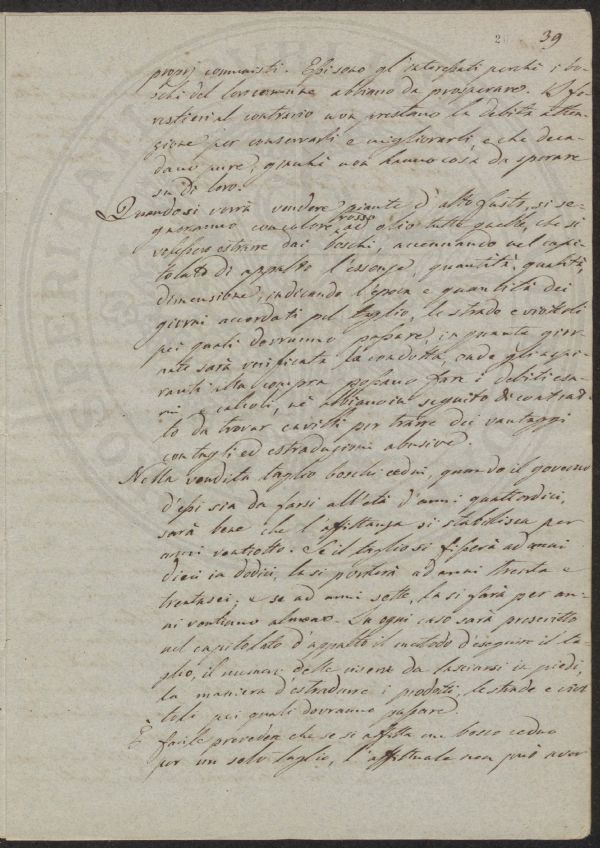 39
proprj comunisti. Essi sono gl'interessati perchè i bo-
schi del loro comune abbiano da prosperare. I fo-
restieri al contrario non prestano la debita atten-
zione per conservarli e migliorarli, e che deca-
dano pure, giacchè non hanno cosa da sperare
su di loro.
Quando si vorrà vendere piante d'alto fusto, si se-
gneranno con colore rosso ad olio tutte quelle, che si
volessero estrarre dai boschi, accennando nel capi-
tolato di appalto l'essenze, quantità, qualità,
dimensione, indicando l'epoca e quantità dei
giorni accordati pel taglio, le strade e viottoli
pei quali dovranno passare, in quante gior-
nate sarà verificata la condotta, onde gli aspi-
ranti alla compra possano fare i debiti esa-
mi e calcoli, nè abbiano in seguito di contrat-
to da trovar cavilli per trarre dei vantaggi
con tagli ed estradazioni abusive.
Nella vendita taglio boschi cedui, quando il governo
d'essi sia da farsi all'età d'anni quattordici,
sarà bene che l'affittanza si stabilisca per
anni ventotto. Se il taglio si fisserà ad anni
dieci in dodici, la si porterà ad anni trenta e
trentasei, e se ad anni sette, la si farà per an-
ni ventuno almeno. In ogni caso sarà prescritto
nel capitolato d'appalto il metodo d'eseguire il ta-
glio, il numero delle riserve da lasciarsi in piedi,
la maniera d'estradurre i prodotti, le strade e viot-
tole pei quali dovranno passare.
È facile preveder che se si affitta un bosco ceduo
per un solo taglio, l'affittuale non può aver